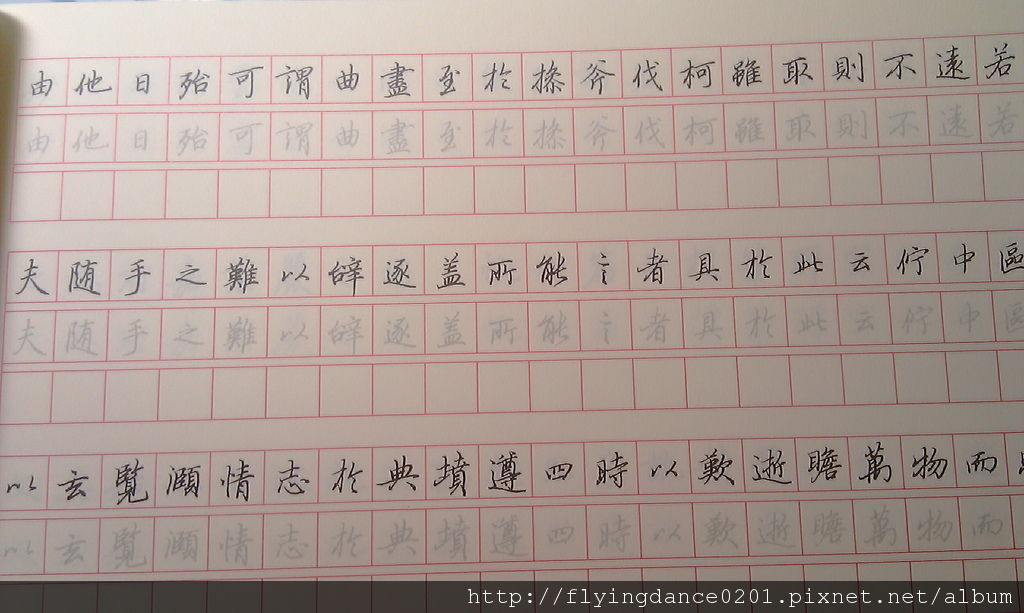 由他日殆可謂曲盡至於操斧伐柯雖取則不遠若
由他日殆可謂曲盡至於操斧伐柯雖取則不遠若
夫随手之難以辞逐盖所能言者具於此云佇中區
夫随手之難以辞逐盖所能言者具於此云佇中區
以玄覽頤情志於典墳遵四時以歎逝瞻萬物而
以玄覽頤情志於典墳遵四時以歎逝瞻萬物而
http://flyingdance0201.pixnet.net/album